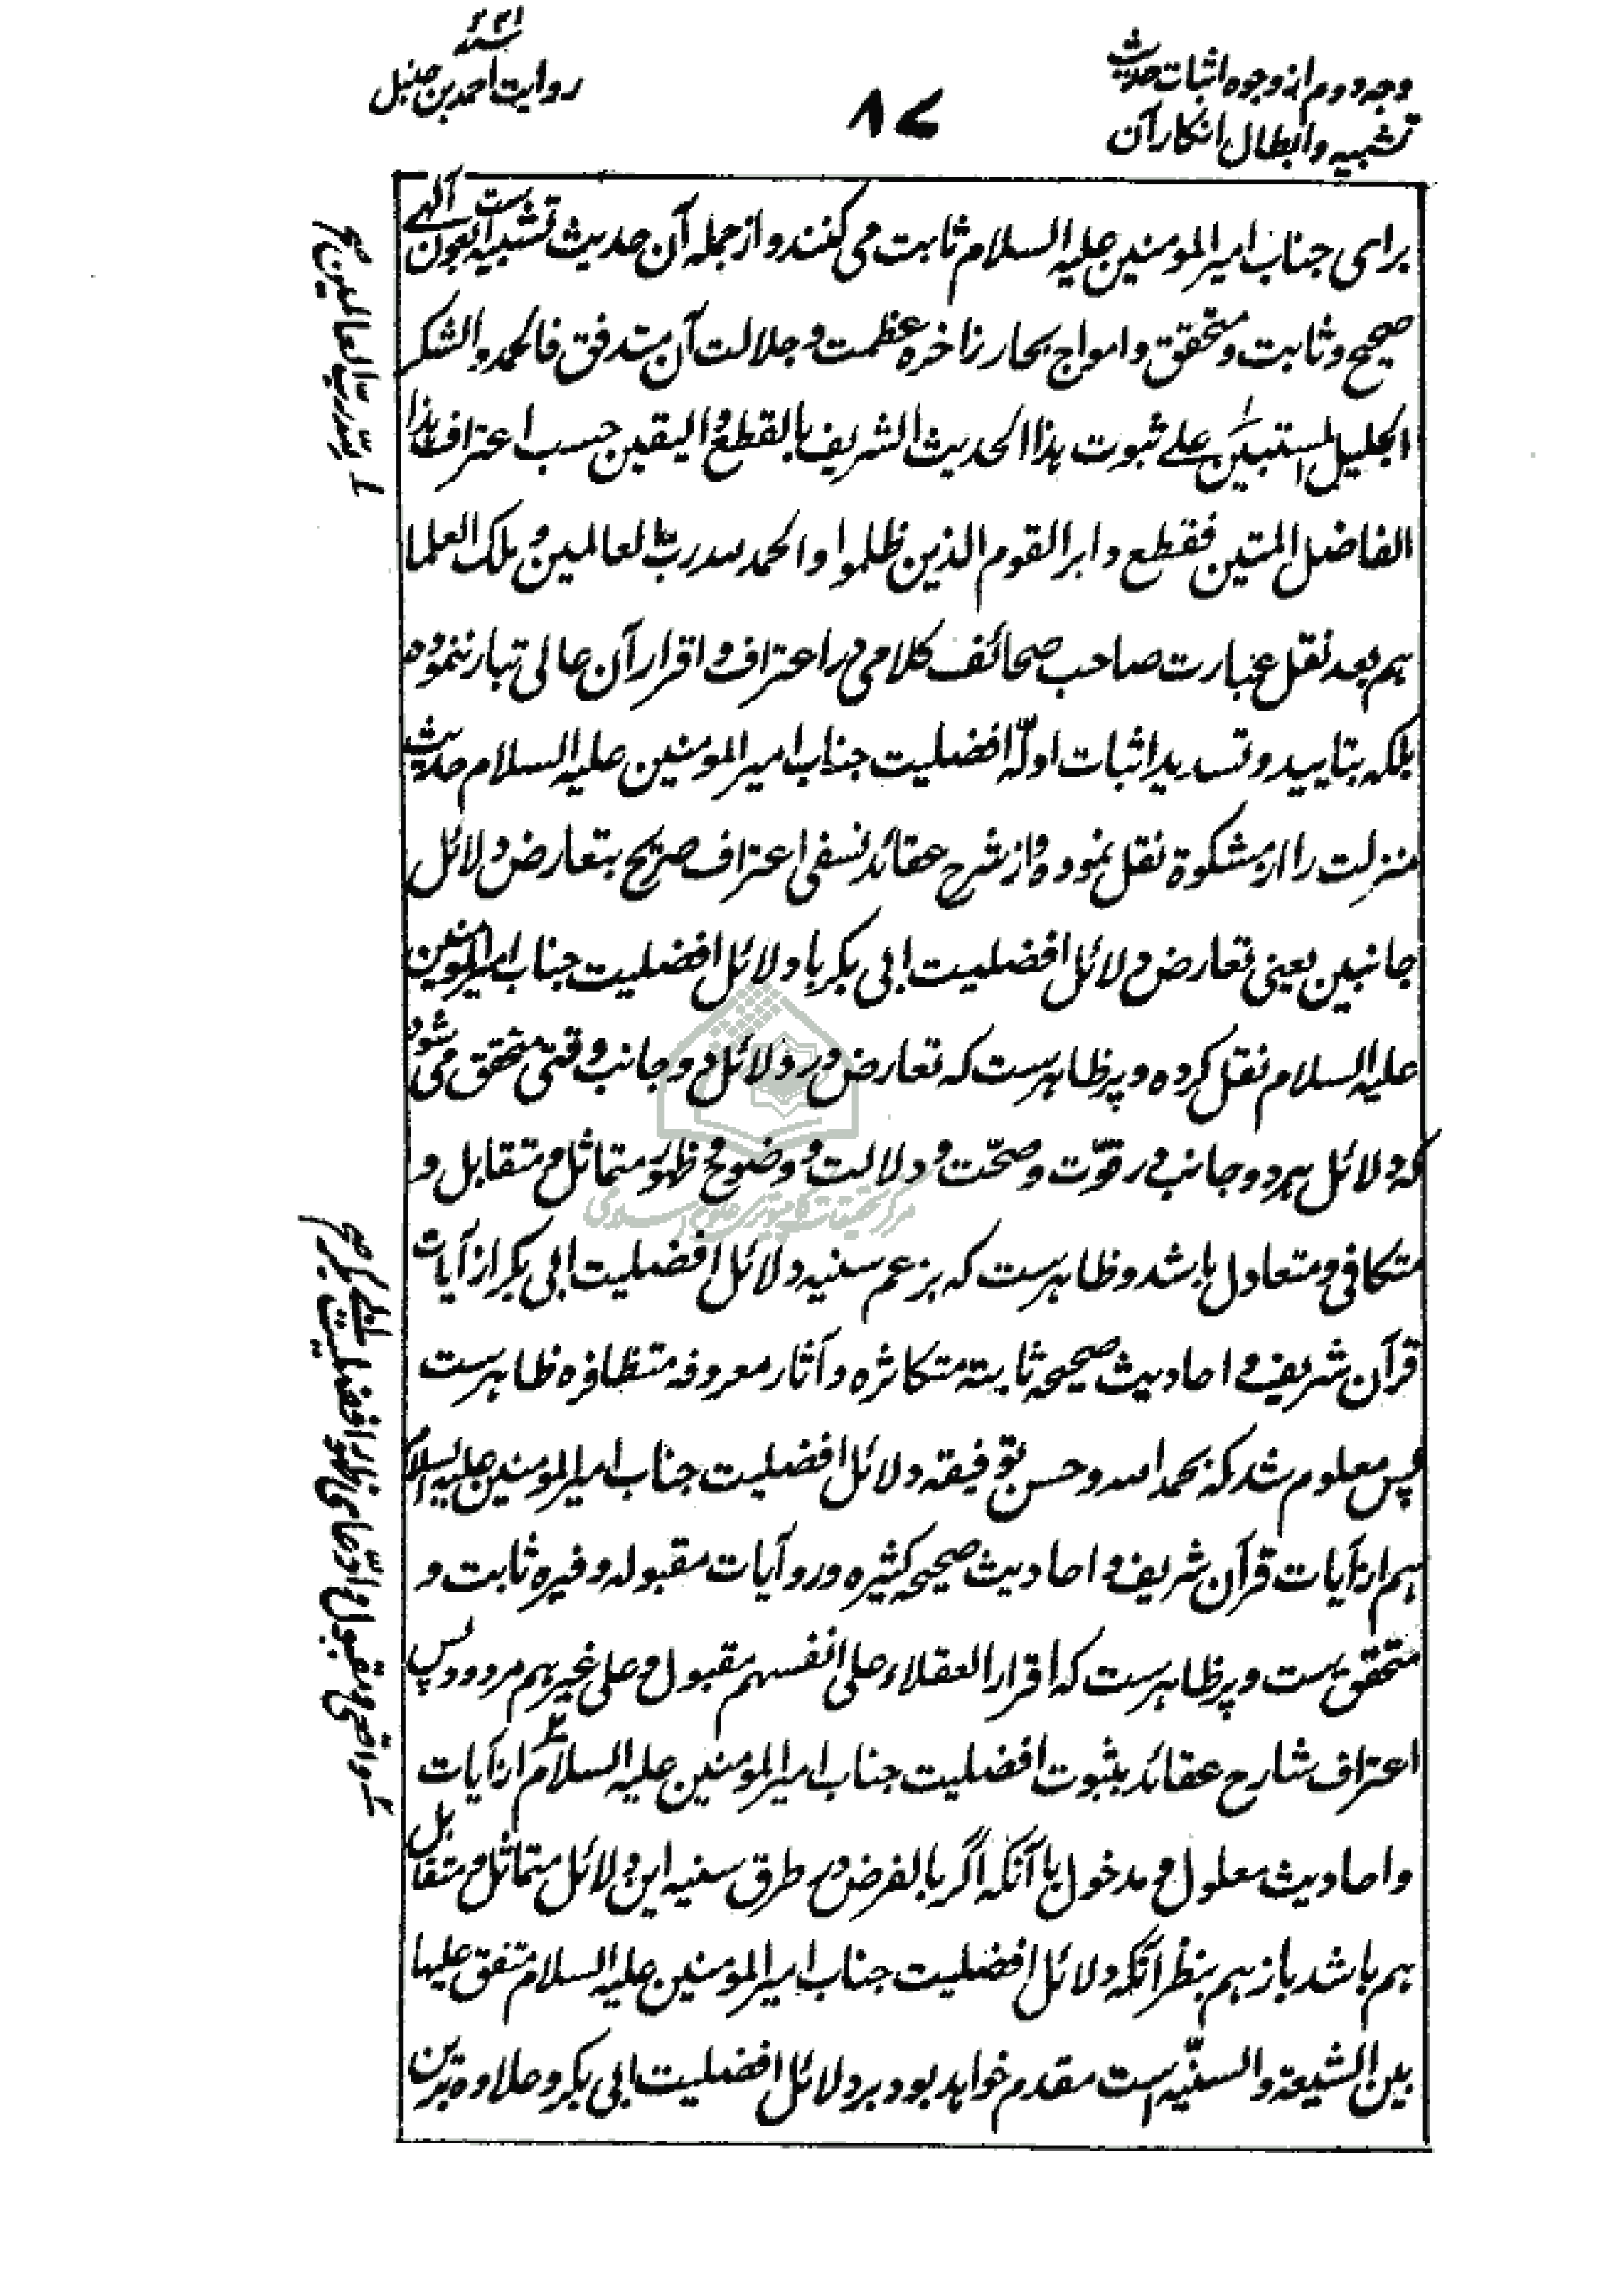 وجه دوم از وجوه اثبات حدیث
تشبیه و ابطال انکار آن
۸۷
سنه ۲۴۱
روایت احمد بن حنبل
برای جناب امیر المومنین علیه السلام ثابت می کنند و از جمله آن حدیث تشبیه است بعون الهی
صحیح و ثابت و متحقق و امواج بحار زاخره عظمت و جلالت آن متدفق فالحمد و الشکر
الجلیل المستبین علی ثبوت هذا الحدیث الشریف بالقطع و الیقین حسب اعتراف هذا
الفاضل المتین فقطع دابر القوم الذین ظلموا و الحمد لله رب العالمین و ملک العلما
هم بعد نقل عبارت صاحب صحائف کلامی در اعتراف و اقرار آن عالی تبار ننموده
بلکه بتایید و تسدید اثبات ادلّه افضلیت جناب امیر المومنین علیه السلام حدیث
منزلت را از مشکوة نقل نموده و از شرح عقائد نسفی اعتراف صریح بتعارض دلائل
جانبین یعنی تعارض دلائل افضلیت ابی بکر با دلائل افضلیت جناب امیر المومنین
علیه السلام نقل کرده و پر ظاهرست که تعارض در دلائل دو جانب وقتی متحقق می شود
که دلائل هر دو جانب در قوّت و صحّت و دلالت و وضوح و ظهور متماثل و متقابل و
متکافی و متعادل باشد و ظاهرست که بزعم سنیه دلائل افضلیت ابی بکر از آیات
قرآن شریف و احادیث صحیحه ثابته متکاثره و آثار معروفه متظافره ظاهرست
پس معلوم شد که بحمد الله و حسن توفیقه دلائل افضلیت جناب امیر المومنین علیه السلام
هم از آیات قرآن شریف و احادیث صحیحه کثیره و روایات مقبوله وفیره ثابت و
متحقق ست و پر ظاهرست که اقرار العقلاء علی انفسهم مقبول و علی غیرهم مردود پس
اعتراف شارح عقائد بثبوت افضلیت جناب امیر المومنین علیه السلام از آیات
و احادیث معلول و مدخول با آنکه اگر بالفرض در طرق سنیه این دلائل متماثل و متقابل
هم باشد باز هم بنظر آنکه دلائل افضلیت جناب امیر المومنین علیه السلام متفق علیها
بین الشیعة و السنّیه است مقدم خواهد بود بر دلائل افضلیت ابی بکر و علاوه برین
لله رب العالمین
مرکز تحقیقات کامپیوتری علوم اسلامی